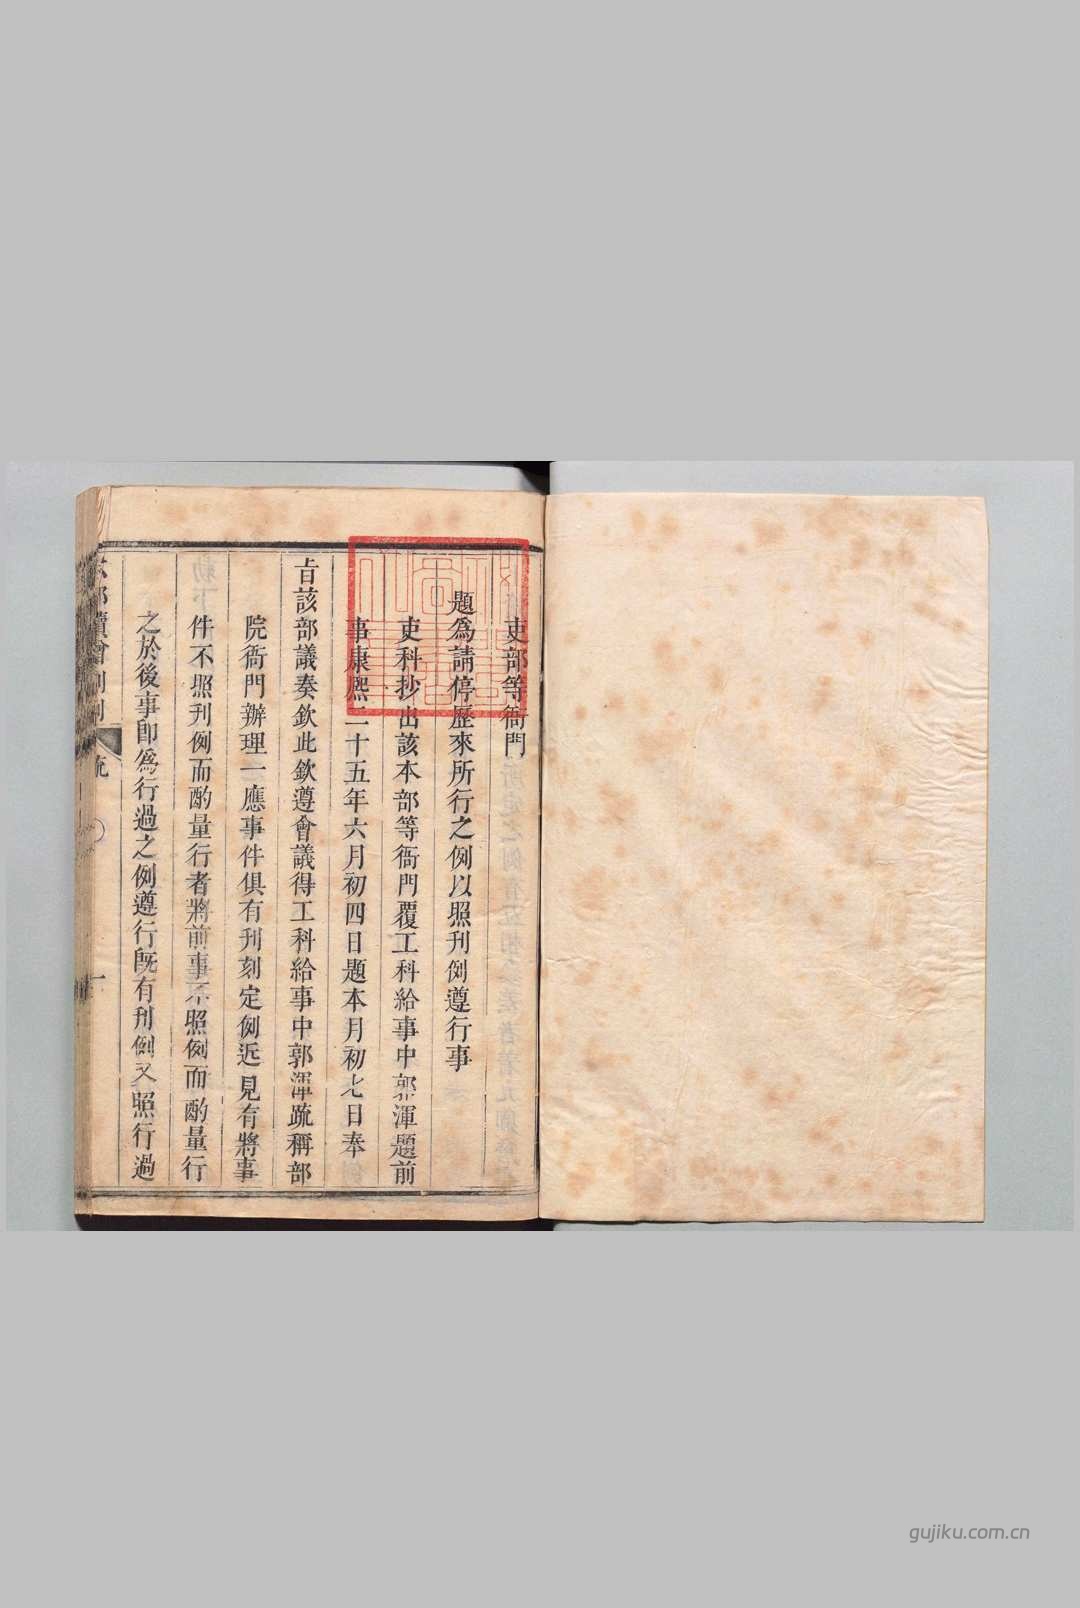 吏部等衙門
題為請停歷來所行之例以照刊例遵行事
吏科抄出該本部等衙門覆工科給事中郭渾題前
事康熙二十五年六月初四日題本月初七日奉
旨該部議奏欽此欽遵會議得工科給事中郭渾疏稱部
院衙門辦理一應事件俱有刊刻定例近見有將事
件不照刊例而酌量行者將前事不照例而酌量行
之於後事即為行過之例遵行既有刊例又照行過
六部續增則例
疏
一
gujiku.com.cn